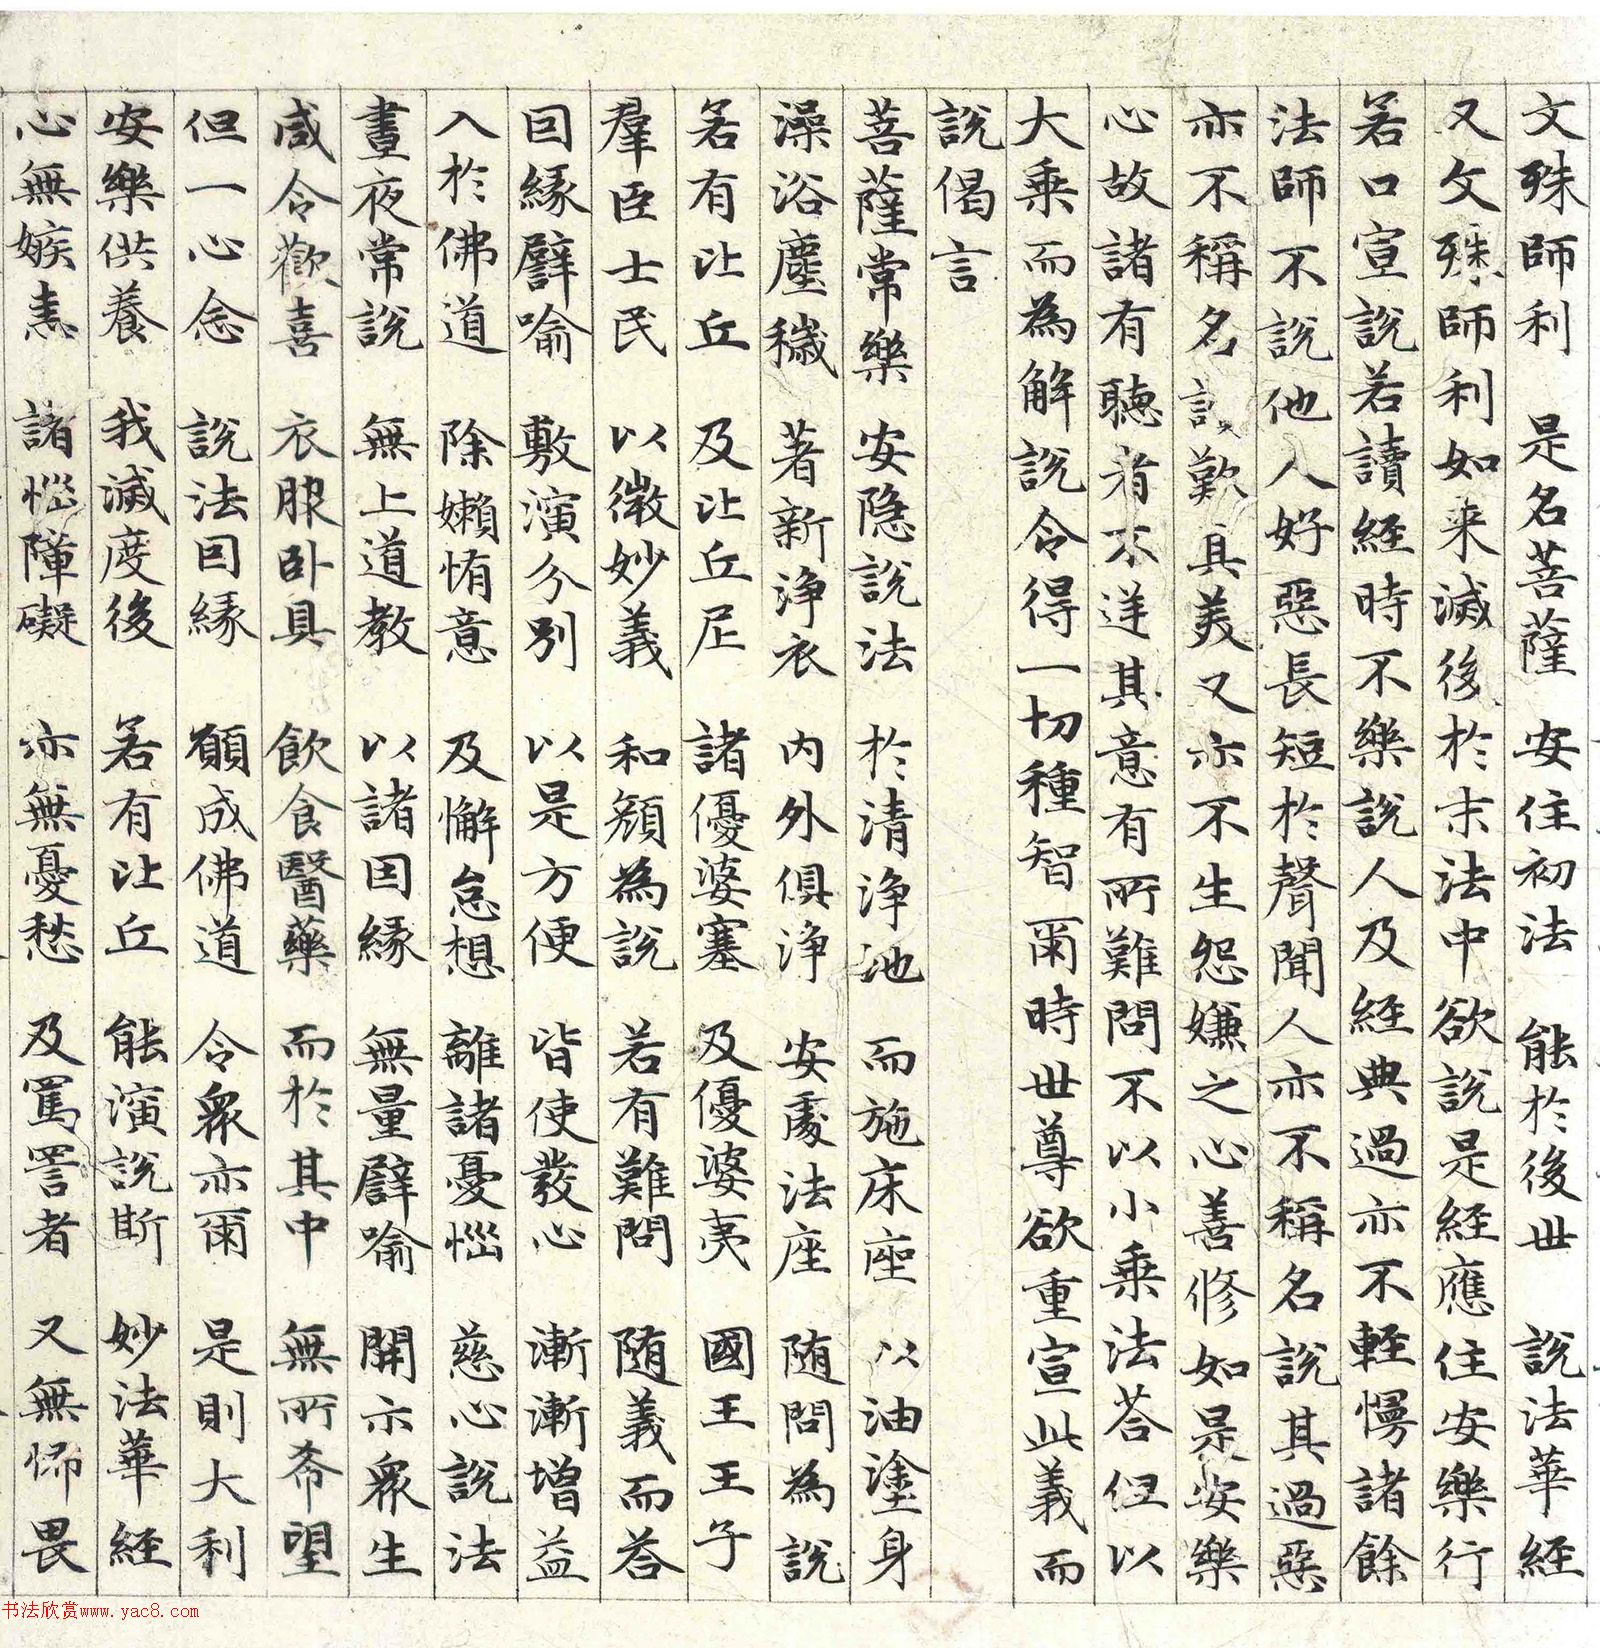 文殊師利　是名菩薩　安住初法　能於後世　說法華経
又文殊師利如来滅後於末法中欲說是経應住安樂行
若口宣說若讀経時不樂說人及経典過亦不輊慢諸餘
法師不說他人好惡長短於聲聞人亦不稱名說其過惡
亦不稱名讃歎其美又亦不生怨嫌之心善修如是安樂
心故諸有聽者不逆其意有所難問不以小乗法荅但以
大乗而為解說令得一切種智爾時世尊欲重宣此義而
說偈言
菩薩常樂　安隠說法　於清淨地　而施床座　以油塗身
澡浴塵穢　著新淨衣　內外俱淨　安處法座　随問為說
若有比丘　及比丘尼　諸優婆塞　及優婆夷　國王王子
羣臣士民　以微妙義　和顏為說　若有難問　随義而荅
因縁譬喻　敷演分別　以是方便　皆使發心　漸漸增益
入於佛道　除嬾惰意　及懈怠想　離諸憂惱　慈心說法
晝夜常說　無上道教　以諸因縁　無量譬喻　開示眾生
咸令歡喜　衣服卧具　飲食醫藥　而於其中　無所希望
但一心念　說法因縁　願成佛道　令眾亦爾　是則大利
安樂供養　我滅度後　若有比丘　能演說斯　妙法華経
心無嫉恚　諸惱障礙　亦無憂愁　及罵詈者　又無怖畏
书法欣赏www.yac8.com